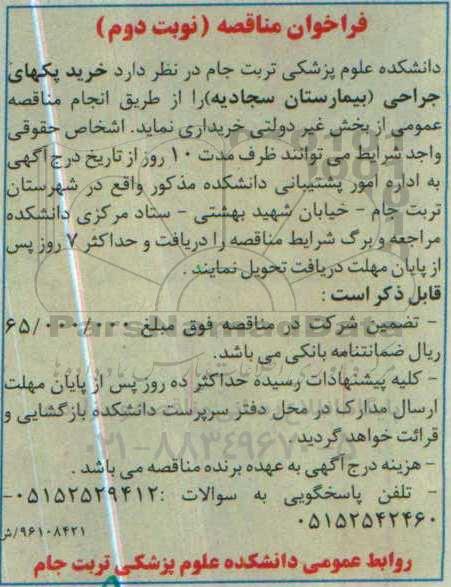 فراخوان مناقصه (نوبت دوم)
دانشکده علوم پزشکی تربت جام در نظر دارد خرید پکهای
جراحی (بیمارستان سجادیه)را از طریق انجام مناقصه
عمومی از بخش غیر دولتی خریداری نماید. اشخاص حقوقی
واجد شرایط می توانند ظرف مدت ۱۰ روز از تاریخ درج آگهی
به اداره امور پشتیبانی دانشکده مذکور واقع در شهرستان
تربت جام - خیابان شهید بهشتی - ستاد مرکزی دانشکده
مراجعه و برگ شرایط مناقصه را دریافت و حداکثر ۷ روز پس
از پایان مهلت دریافت تحویل نمایند .
قابل ذکر است :
- تضمین شرکت در مناقصه فوق مبلغ ۶۵/۰۰۰/۰۰۰
ریال ضمانتنامه بانکی می باشد.
- کلیه پیشنهادات رسیده حداکثر ده روز پس از پایان مهلت
ارسال مدارک در محل دفتر سرپرست دانشکده بازگشایی و
قرائت خواهد گردید .
- هزینه درج آگهی به عهده برنده مناقصه می باشد .
- تلفن پاسخگویی به سوالات :۰۵۱۵۲۵۲۹۴۱۲-
۰۵۱۵۲۵۴۲۴۶۰
۹۶۱۰۸۴۲۱/ش
روابط عمومی دانشکده علوم پزشکی تربت جام
ParsNamadData
۰۲۱-۸۸۳۴۹۶۷۰-۵